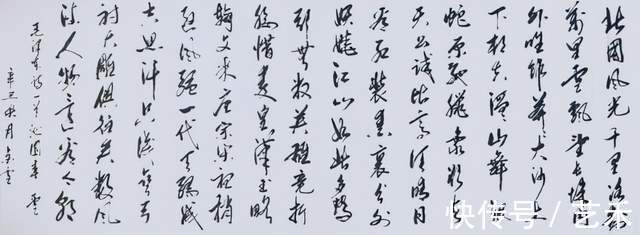 北国风光千里冰封
萬里雪飘望长城内
外唯馀莽莽大河上
下顿失滔滔山舞银
蛇原驰腊象欲与
天公试比高须晴日
看红装素裹分外
妖娆江山如此多娇
引无数英雄竞折
腰惜秦皇汉武略
输文采唐宗宋祖稍
逊风骚一代天骄成
吉思汗只识弯弓
射大雕俱往矣数风
流人物还看今朝
毛泽东诗词沁园春雪
辛丑秋月
快传号／艺禾